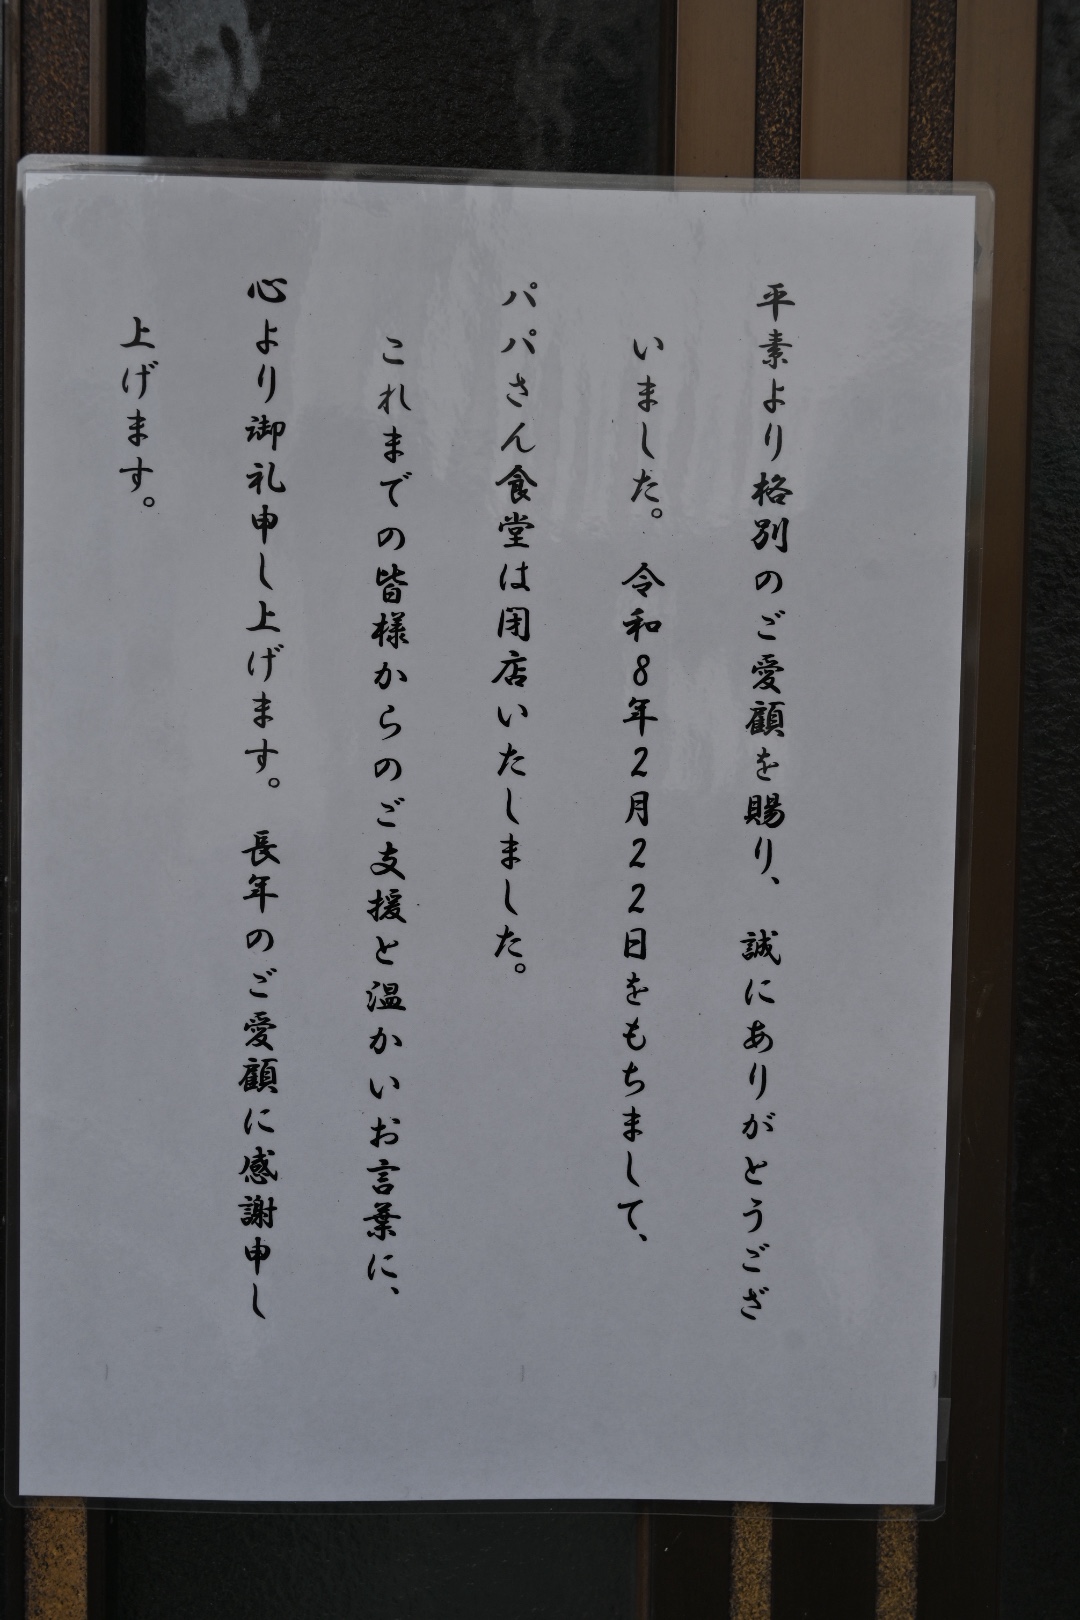 平素より格別のご愛顧を賜り、誠にありがとうござ
いました。令和8年2月22日をもちまして、
パパさん食堂は閉店いたしました。
これまでの皆様からのご支援と温かいお言葉に、
心より御礼申し上げます。長年のご愛顧に感謝申し
上げます。